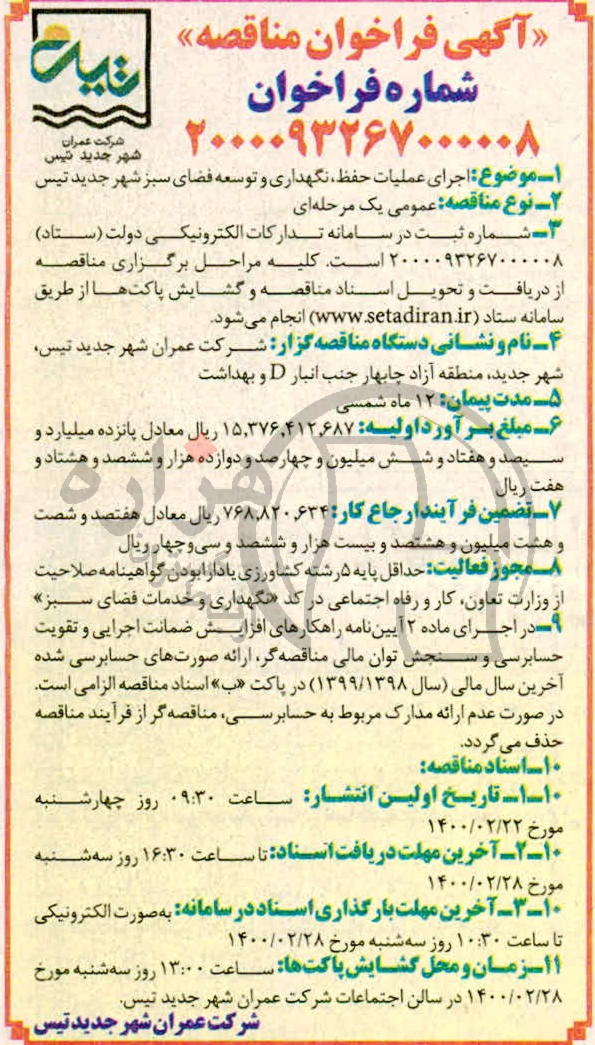 «آگهی فراخوان مناقصه»
شماره فراخوان
۲۰۰۰۰۹۳۲۶۷۰۰۰۰۰۸
تیس
شرکت عمران
شهر جدید تیس
۱ـ موضوع: اجرای عملیات حفظ، نگهداری و توسعه فضای سبز شهر جدید تیس
۲ـ نوع مناقصه: عمومی یک مرحله‌ای
۳ـ شماره ثبت در سامانه تدارکات الکترونیکی دولت (ستاد)
۲۰۰۰۰۹۳۲۶۷۰۰۰۰۰۸ است. کلیه مراحل برگزاری مناقصه
از دریافت و تحویل اسناد مناقصه و گشایش پاکت‌ها از طریق
سامانه ستاد (www.setadiran.ir) انجام می‌شود.
۴ـ نام و نشانی دستگاه مناقصه‌گزار: شرکت عمران شهر جدید تیس،
شهر جدید، منطقه آزاد چابهار جنب انبار D و بهداشت
۵ـ مدت پیمان: ۱۲ ماه شمسی
۶ـ مبلغ برآورد اولیه: ۱۵,۳۷۶,۴۱۲,۶۸۷ ریال معادل پانزده میلیارد و
سیصد و هفتاد و شش میلیون و چهارصد و دوازده هزار و ششصد و هشتاد و
هفت ریال
۷ـ تضمین فرآیند ارجاع کار: ۷۶۸,۸۲۰,۶۳۴ ریال معادل هفتصد و شصت
و هشت میلیون و هشتصد و بیست هزار و ششصد و سی‌وچهار ریال
۸ـ مجوز فعالیت: حداقل پایه ۵ رشته کشاورزی یا دارا بودن گواهینامه صلاحیت
از وزارت تعاون، کار و رفاه اجتماعی در کد «نگهداری و خدمات فضای سبز»
۹ـ در اجرای ماده ۲ آیین‌نامه راهکارهای افزایش ضمانت اجرایی و تقویت
حسابرسی و سنجش توان مالی مناقصه‌گر، ارائه صورت‌های حسابرسی شده
آخرین سال مالی (سال ۱۳۹۹/۱۳۹۸) در پاکت «ب» اسناد مناقصه الزامی است.
در صورت عدم ارائه مدارک مربوط به حسابرسی، مناقصه‌گر از فرآیند مناقصه
حذف می‌گردد.
۱۰ـ اسناد مناقصه:
۱۰ـ۱ـ تاریخ اولین انتشار: ساعت ۰۹:۳۰ روز چهارشنبه
مورخ ۱۴۰۰/۰۲/۲۲
۱۰ـ۲ـ آخرین مهلت دریافت اسناد: تا ساعت ۱۶:۳۰ روز سه‌شنبه
مورخ ۱۴۰۰/۰۲/۲۸
۱۰ـ۳ـ آخرین مهلت بارگذاری اسناد در سامانه: به‌صورت الکترونیکی
تا ساعت ۱۰:۳۰ روز سه‌شنبه مورخ ۱۴۰۰/۰۲/۲۸
۱۱ـ زمان و محل گشایش پاکت‌ها: ساعت ۱۳:۰۰ روز سه‌شنبه مورخ
۱۴۰۰/۰۲/۲۸ در سالن اجتماعات شرکت عمران شهر جدید تیس.
شرکت عمران شهر جدید تیس
هزاره